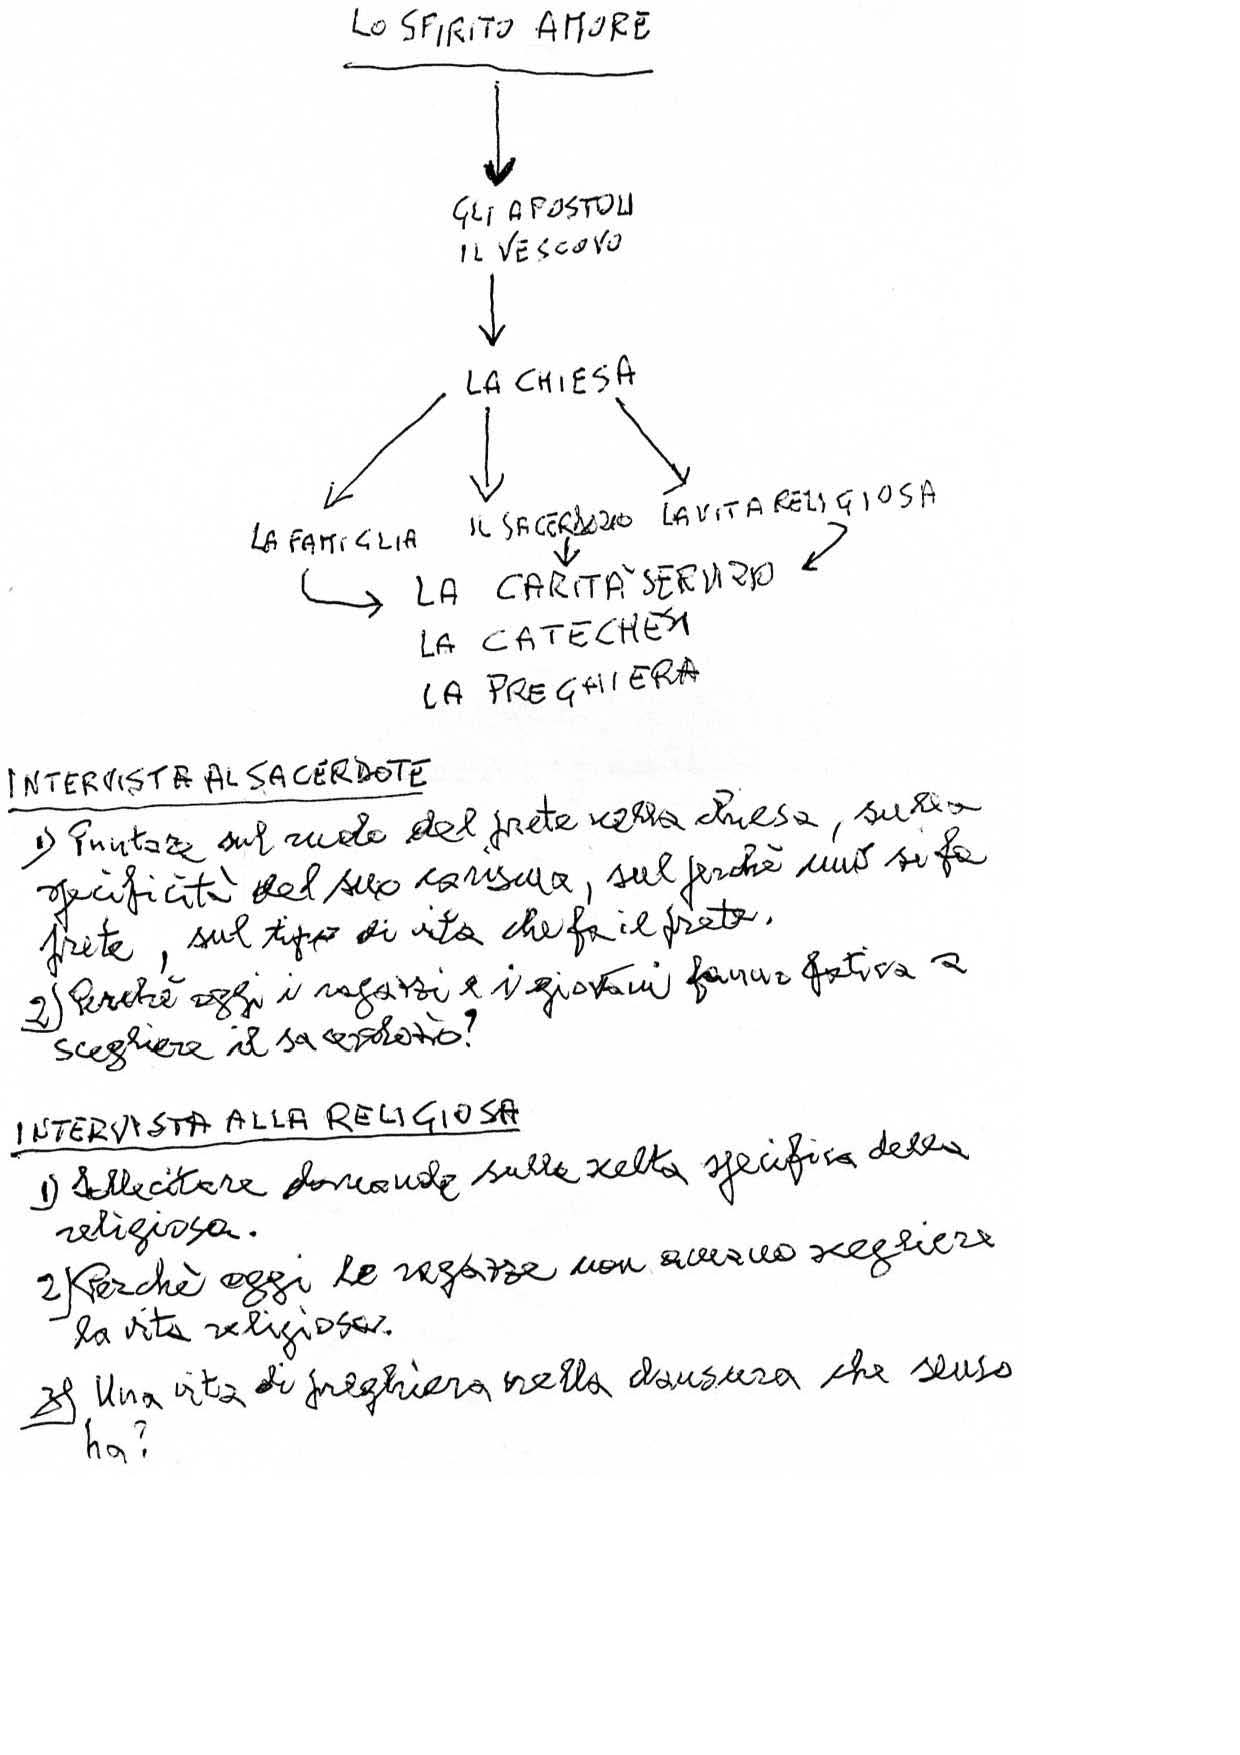 LO SPIRITO AMORE
GLI APOSTOLI
IL VESCOVO
LA CHIESA
LA FAMIGLIA IL SACERDOZIO LA VITA RELIGIOSA
LA CARITÀ SERVIZIO
LA CATECHESI
LA PREGHIERA
INTERVISTA AL SACERDOTE
1) Puntare sul ruolo del prete nella chiesa, sulla
specificità del suo carisma, sul perchè uno si fa
prete, sul tipo di vita che fa il prete.
2) Perchè oggi i ragazzi e i giovani fanno fatica a
scegliere il sacerdozio?
INTERVISTA ALLA RELIGIOSA
1) Sollecitare domande sulla scelta specifica della
religiosa.
2) Perchè oggi le ragazze non amano scegliere
la vita religiosa.
3) Una vita di preghiera nella clausura che senso
ha?